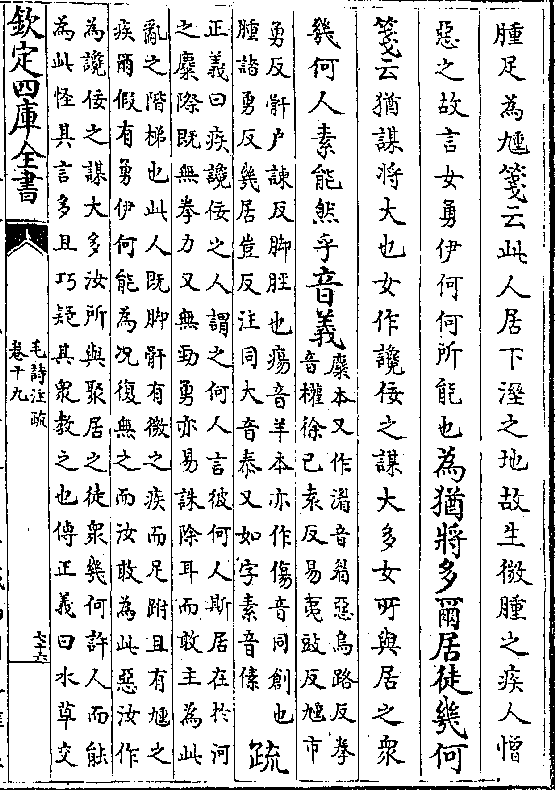 腫足為尰箋云此人居下溼之地故生微腫之疾人憎
惡之故言女勇伊何何所能也為猶將多爾居徒幾何
箋云猶謀將大也女作讒佞之謀大多女所與居之衆
幾何人素能然乎音義
麋本又作湄音眉惡烏路反拳
音權徐己袁反易夷豉反尰市
勇反骭户諫反脚脛也瘍音羊本亦作傷音同創也
腫諸勇反幾居豈反注同大音泰又如字素音傃
疏
正義曰疾讒佞之人謂之何人言彼何人斯居在於河
之麋際既無拳力又無勁勇亦易誅除耳而敢主為此
亂之階梯也此人既脚骭有微之疾而足跗且有尰之
疾爾假有勇伊何能為况復無之而汝敢為此惡汝作
為讒佞之謀大多汝所與聚居之徒衆幾何許人而能
為此怪其言多且巧疑其衆教之也傳正義曰水草交
欽定四庫全書
毛詩注疏
卷十九
七十六